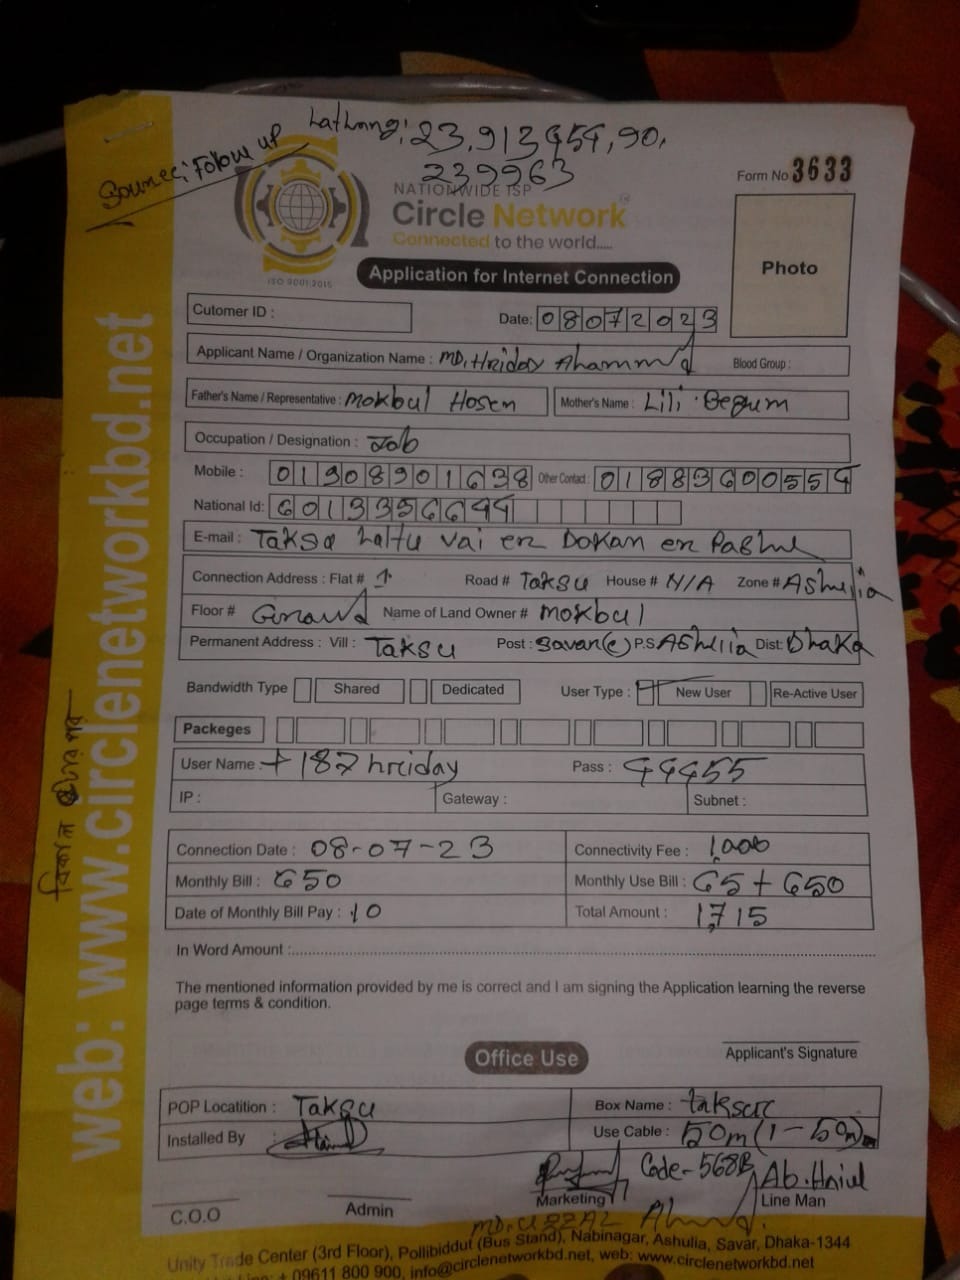 Form No 3633
NATIONWIDE ISP
Circle Network
Connected to the world.....
ISO 9001:2015
Application for Internet Connection
Photo
Cutomer ID :
Date: 08072023
Applicant Name / Organization Name : MD. Hriday Ahammed Blood Group :
Father's Name / Representative : Mokbul Hosen Mother's Name : Lili Begum
Occupation / Designation : Job
Mobile : 01908901638 Other Contact : 01883600554
National Id: 6013356644
E-mail : Taksa Laltu vai er Dokan er Pashe
Connection Address : Flat # 1 Road # Taksu House # N/A Zone # Ashulia
Floor # Ground Name of Land Owner # Mokbul
Permanent Address : Vill : Taksu Post : Savar(c) P.S Ashulia Dist: Dhaka
Bandwidth Type Shared Dedicated User Type : New User Re-Active User
Packeges
User Name : + 187 hriday Pass : 44455
IP : Gateway : Subnet :
Connection Date : 08-07-23 Connectivity Fee : 1,000
Monthly Bill : 650 Monthly Use Bill : 65 + 650
Date of Monthly Bill Pay : 10 Total Amount : 1,715
In Word Amount :
The mentioned information provided by me is correct and I am signing the Application learning the reverse
page terms & condition.
Applicant's Signature
Office Use
POP Locatition : Taksu Box Name :
Installed By : Use Cable : 50m (1-50m)
Code-568B
C.O.O Admin Marketing Line Man
Unity Trade Center (3rd Floor), Pollibiddut (Bus Stand), Nabinagar, Ashulia, Savar, Dhaka-1344
09611 800 900, info@circlenetworkbd.net, web: www.circlenetworkbd.net
web: www.circlenetworkbd.net